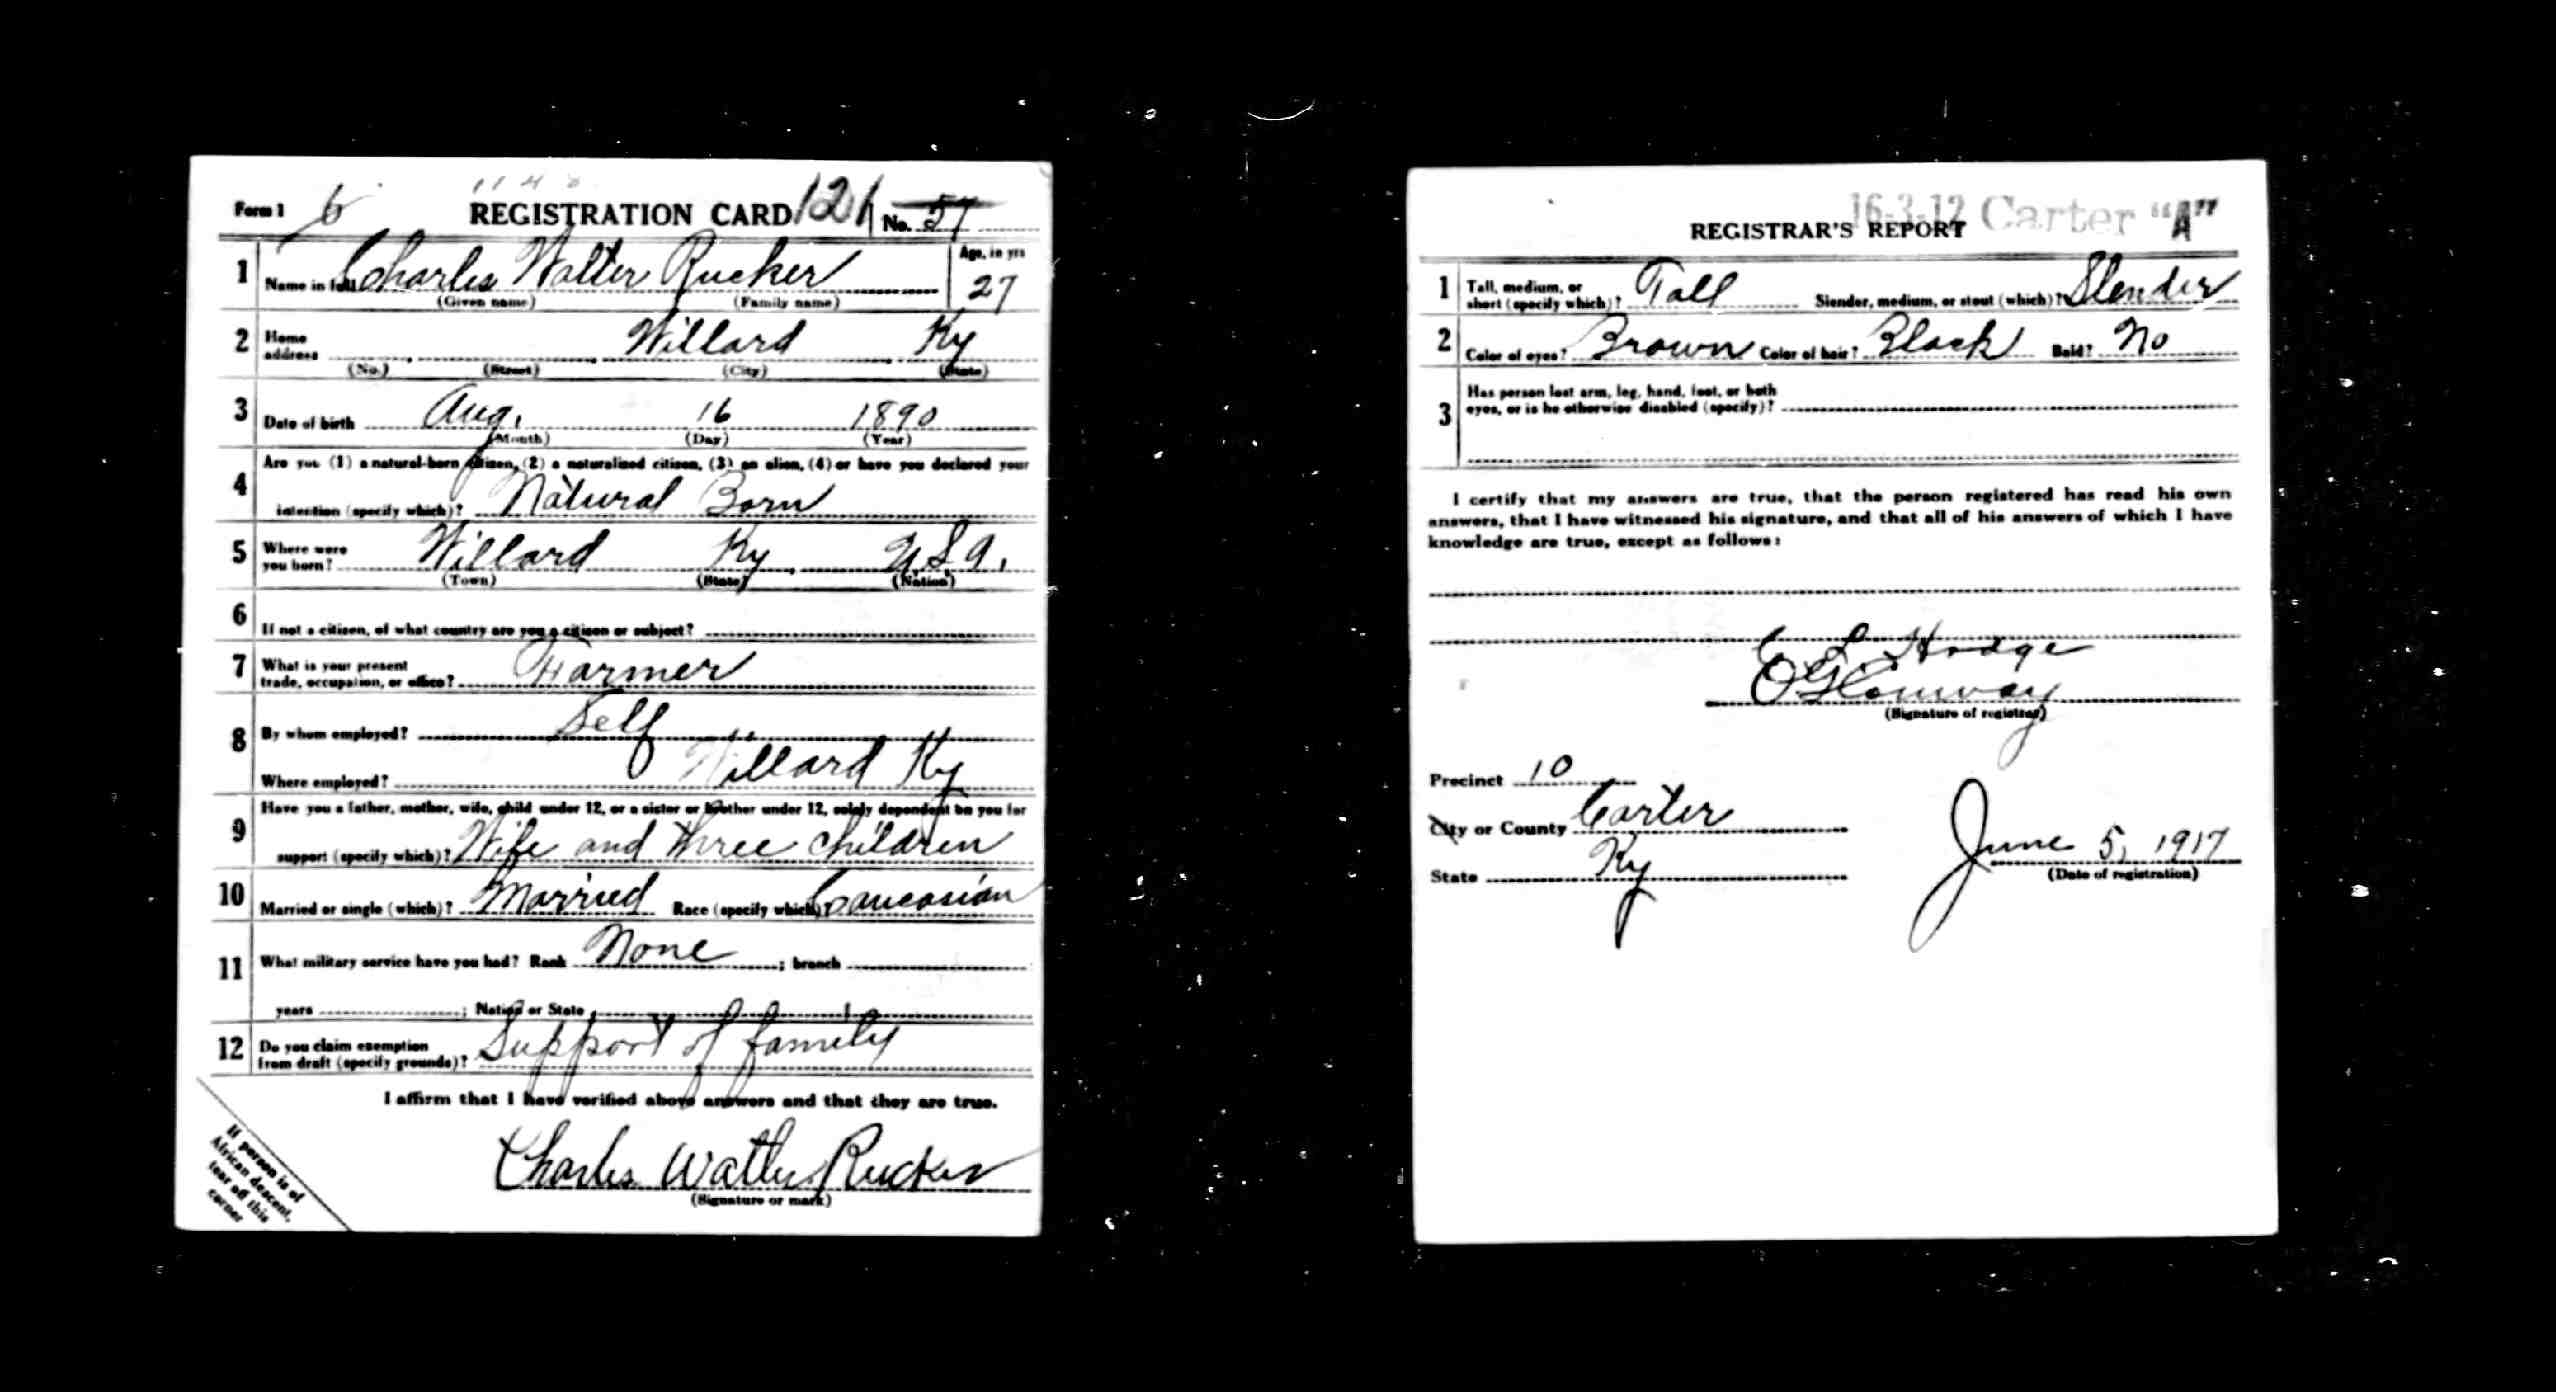 1148
Form 1 6 REGISTRATION CARD 121 No. 57
1 Name in full Charles Walter Rucker Age, in yrs
(Given name) (Family name) 27
2 Home address Willard Ky
(No.) (Street) (City) (State)
3 Date of birth Aug. 16 1890
(Month) (Day) (Year)
4 Are you (1) a natural-born citizen, (2) a naturalized citizen, (3) an alien, (4) or have you declared your
intention (specify which)? Natural Born
5 Where were you born? Willard Ky U.S.A.
(Town) (State) (Nation)
6 If not a citizen, of what country are you a citizen or subject?
7 What is your present
trade, occupation, or office? Farmer
8 By whom employed? Self
Where employed? Willard Ky
9 Have you a father, mother, wife, child under 12, or a sister or brother under 12, solely dependent on you for
support (specify which)? Wife and three children
10 Married or single (which)? Married Race (specify which)? Caucasian
11 What military service have you had? Rank None ; branch
years ; Nation or State
12 Do you claim exemption
from draft (specify grounds)? Support of family
I affirm that I have verified above answers and that they are true.
Charles Walter Rucker
(Signature or mark)
If person is of
African descent,
tear off this
corner
16-3-12 Carter "A"
REGISTRAR'S REPORT
1 Tall, medium, or
short (specify which)? Tall Slender, medium, or stout (which)? Slender
2 Color of eyes? Brown Color of hair? Black Bald? No
3 Has person lost arm, leg, hand, foot, or both
eyes, or is he otherwise disabled (specify)?
I certify that my answers are true, that the person registered has read his own
answers, that I have witnessed his signature, and that all of his answers of which I have
knowledge are true, except as follows:
C L Hodge
O G Conway
(Signature of registrar)
Precinct 10
City or County Carter
State Ky
June 5, 1917
(Date of registration)